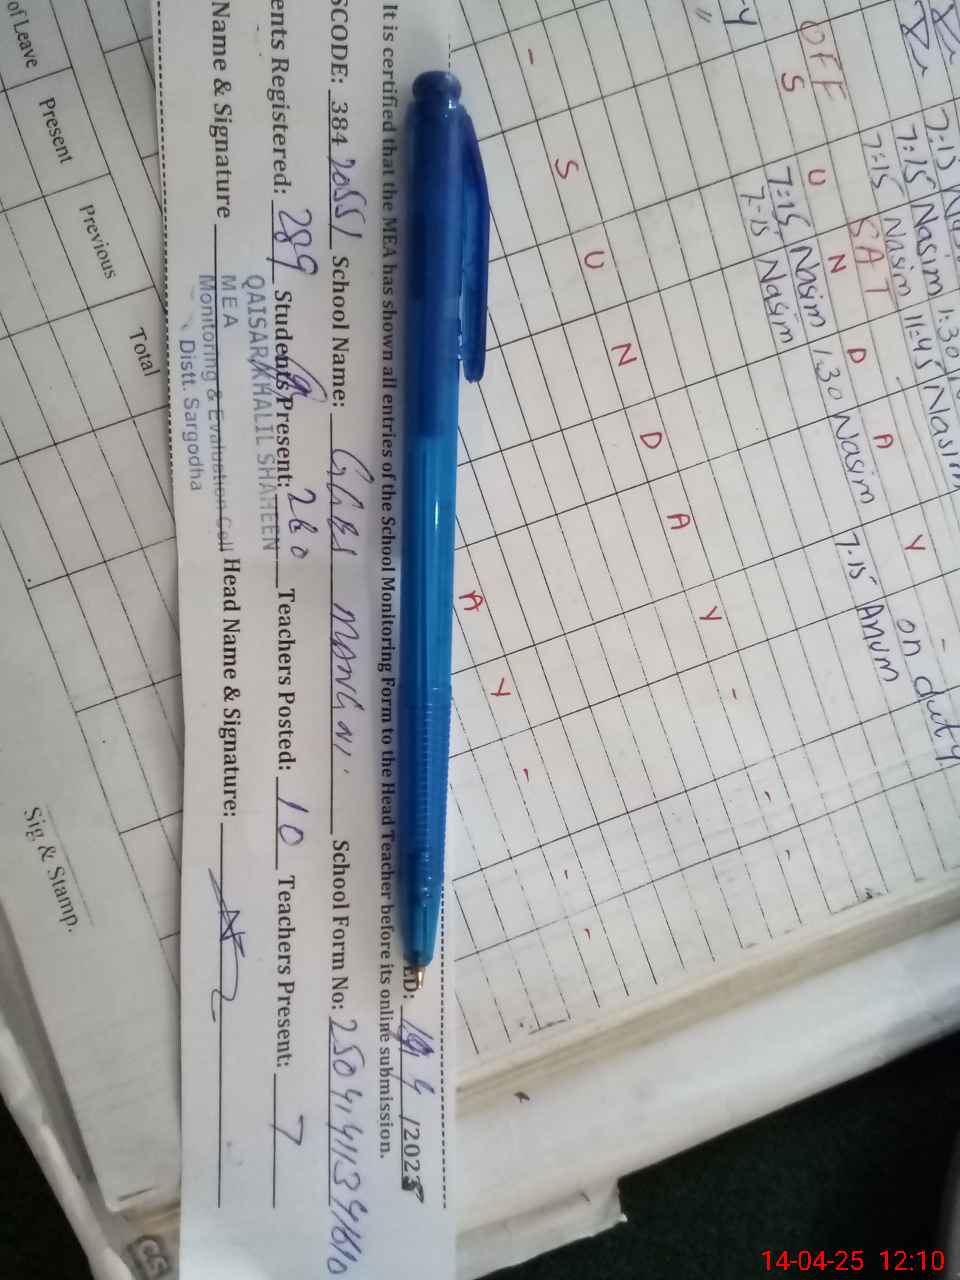 ED: 14 4 /2025
It is certified that the MEA has shown all entries of the School Monitoring Form to the Head Teacher before its online submission.
SCODE: 384 20551 School Name: School Form No:
ents Registered: 289 Students Present: 260 Teachers Posted: 10 Teachers Present: 7
Name & Signature Head Name & Signature:
QAISAR KHALIL SHAHEEN
MEA
Monitoring & Evaluation Cell
Distt. Sargodha
of Leave Present Previous Total
Sig & Stamp.
7:15 Nasim 1:30 Nasim
7:15 Nasim 11:45 Nasim
SAT
OFF
S U N D A Y
on duty
7:15 Nasim 1.30 Nasim 7.15 Anum
7.15 Nasim
S U N D A Y -
A Y -
CS
14-04-25 12:10